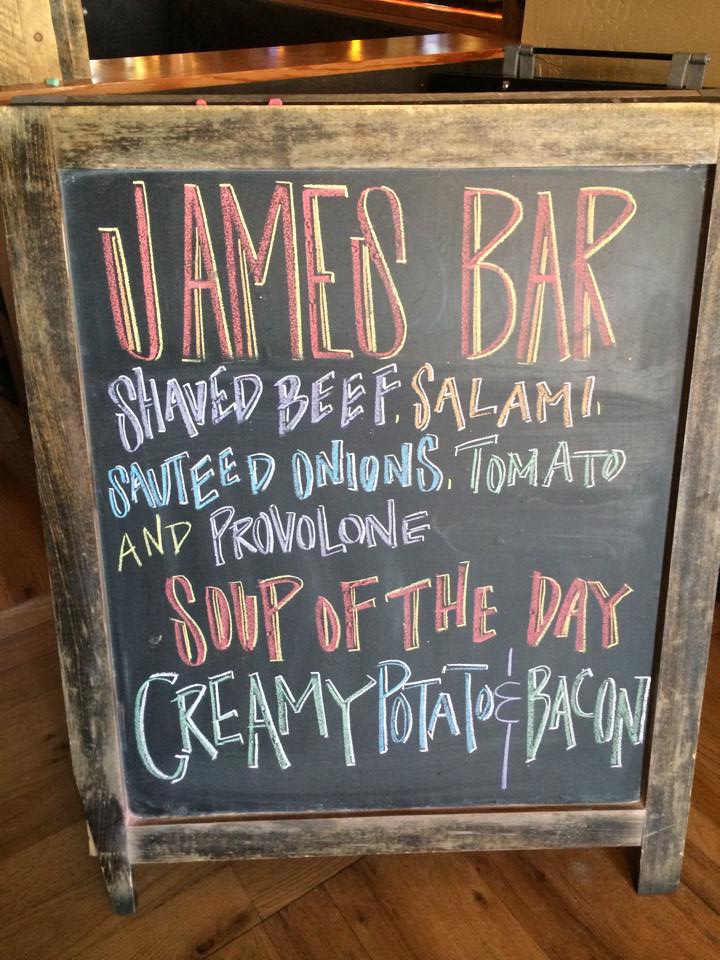 JAMES BAR
SHAVED BEEF, SALAMI,
SAUTEED ONIONS, TOMATO
AND PROVOLONE
SOUP OF THE DAY
CREAMY POTATO & BACON